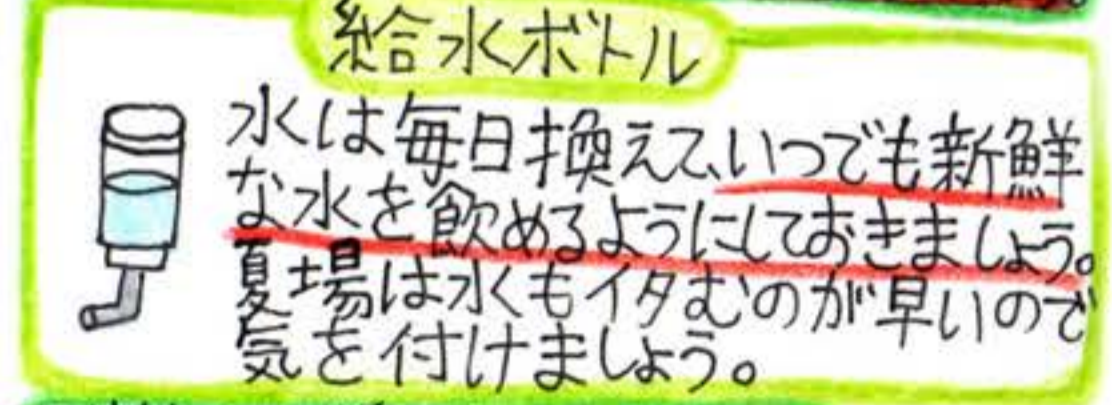 給水ボトル
水は毎日換えて、いつでも新鮮
な水を飲めるようにしておきましょう。
夏場は水もイタむのが早いので
気を付けましょう。